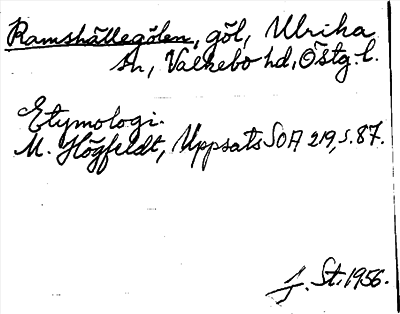 Ramshällegölen, göl, Ulrika
sn, Valkebo hd, Östg. l.
Etymologi.
M. Högfeldt, Uppsats SOA 219, s. 87.
J. St. 1956.